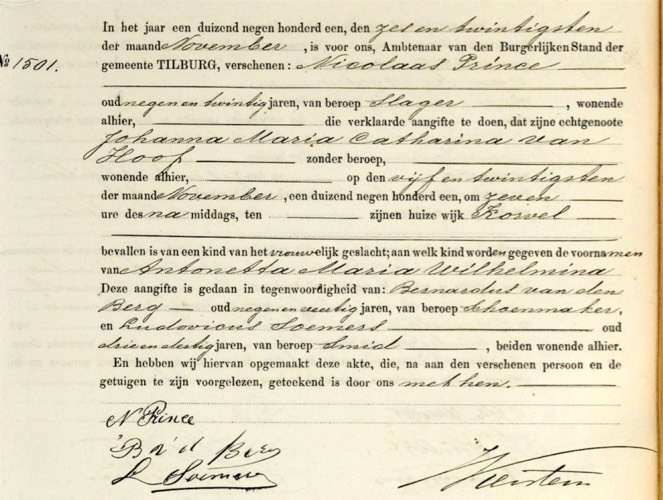 In het jaar een duizend negen honderd een, den zes en twintigsten
der maand November, is voor ons, Ambtenaar van den Burgerlijken Stand der
No 1501. gemeente TILBURG, verschenen: Nicolaas Prince
oud negen en twintig jaren, van beroep Slager, wonende
alhier, die verklaarde aangifte te doen, dat zijne echtgenoote
Johanna Maria Catharina van
Hoof zonder beroep,
wonende alhier, op den vijf en twintigsten
der maand November, een duizend negen honderd een, om zeven
ure des na middags, ten zijnen huize wijk Korvel
bevallen is van een kind van het vrouwelijk geslacht; aan welk kind worden gegeven de voornamen
van Antonetta Maria Wilhelmina
Deze aangifte is gedaan in tegenwoordigheid van: Bernardus van den
Berg oud negen en veertig jaren, van beroep Schoenmaker,
en Ludovicus Soemers oud
drie en dertig jaren, van beroep Smid, beiden wonende alhier.
En hebben wij hiervan opgemaakt deze akte, die, na aan den verschenen persoon en de
getuigen te zijn voorgelezen, geteekend is door ons met hen.
N Prince
B v d Berg
L Soemers